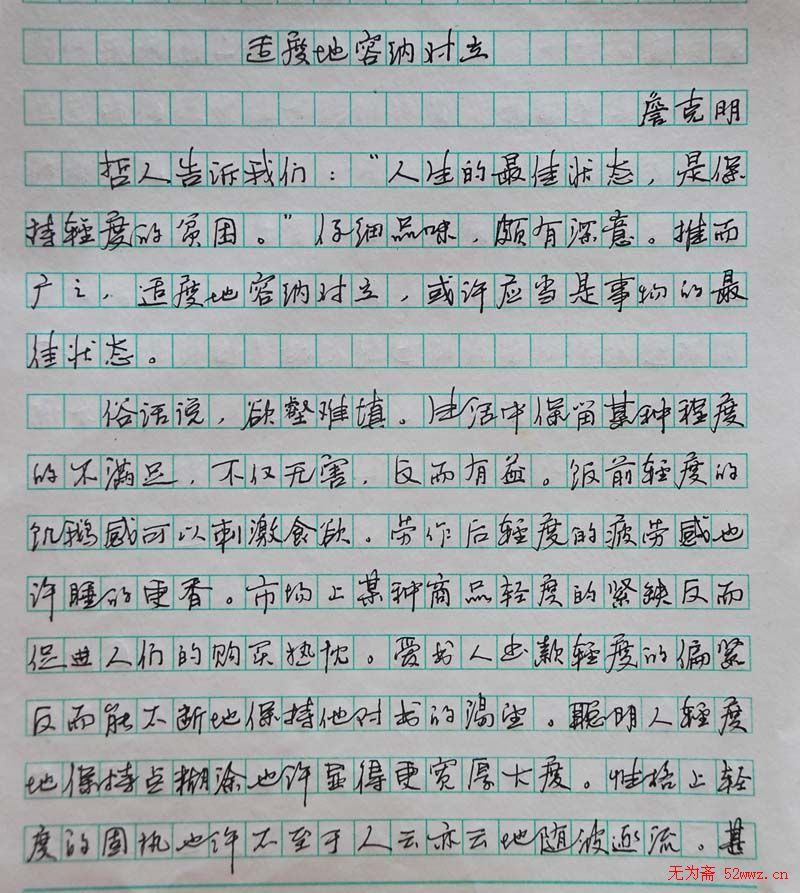 适度地容纳对立
詹克明
哲人告诉我们："人生的最佳状态，是保
持轻度的贫困。"仔细品味，颇有深意。推而
广之，适度地容纳对立，或许应当是事物的最
佳状态。
俗话说，欲壑难填。生活中保留某种程度
的不满足，不仅无害，反而有益。饭前轻度的
饥鹅感可以刺激食欲。劳作后轻度的疲劳感也
许睡的更香。市场上某种商品轻度的紧缺反而
促进人们的购买热忱。爱书人书款轻度的偏紧
反而能不断地保持他对书的渴望。聪明人轻度
地保持点糊涂也许显得更宽厚大度。性格上轻
度的固执也许不至于人云亦云地随波逐流。甚
无为斋 52wwz.cn